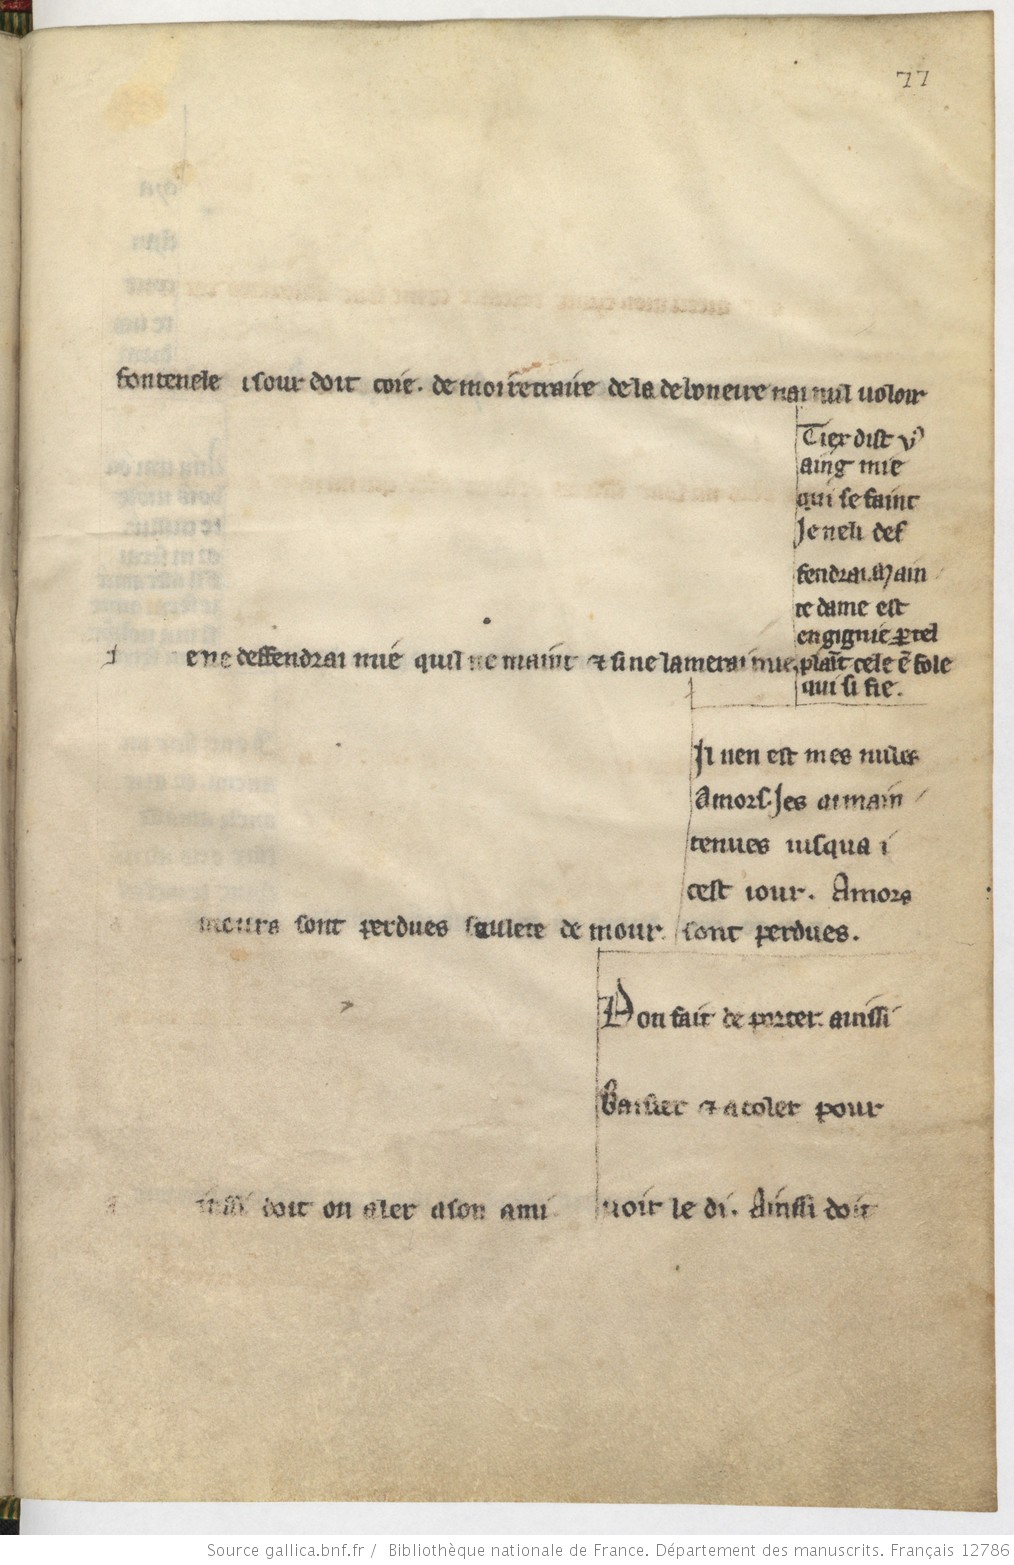 77
fontenele isour doit coie. de moi retraire de la de loneure nai nul uoloir
Tier dist
aing mie
qui se faint
Je neli def
fendrai. Main
te dame est
engignie
e ne deffendrai mie quil ne maint ⁊ si ne lamerai mie. cele ē fole
qui si fie.
Jl nen est mes nules
Amors. Jes ai main
tenues iusqua i
cest iour. Amors
mours sont perdues seulete de mour. sont perdues.
on fait de porter. ainssi
baisier ⁊ acoler pour
inssi doit on aler a son ami uoir le di. Ainssi doit
Source gallica.bnf.fr / Bibliothèque nationale de France. Département des manuscrits. Français 12786